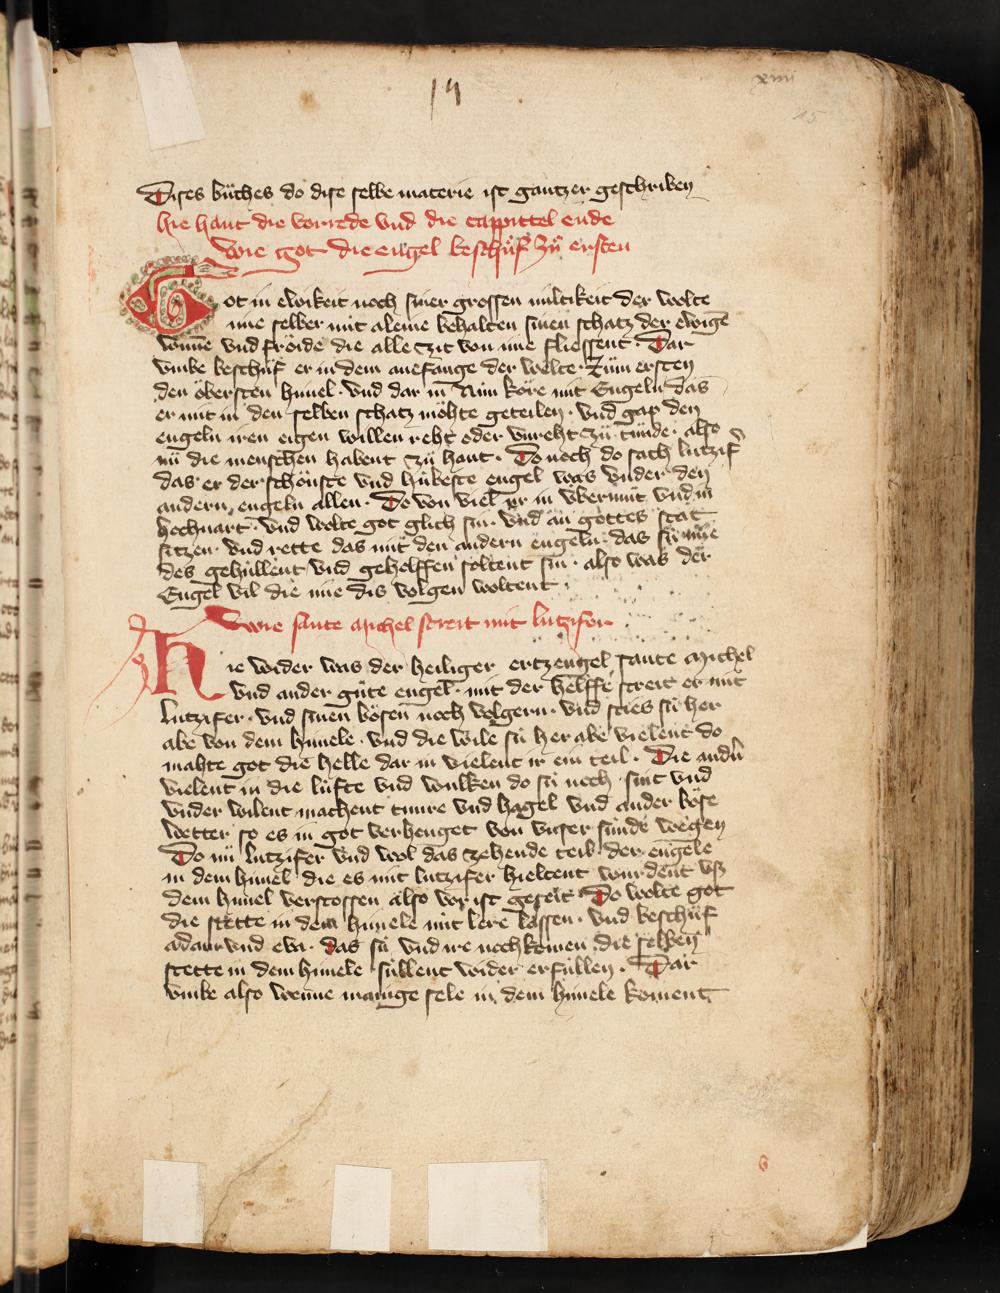 19
xiiii
15
Dises bůches do dise selbe materie ist gantzer geschriben
hie hant die vorrede vnd die cappittel ende
wie got die engel beschůf zů ersten
Got in ewikeit noch siner grossen miltikeit der wolte
ime selber nüt aleine behalten sinen schatz der ewigē
wūne vnd fröide die alle zit von ime fliessent · Dar
vmbe beschůf er in dem anefange der welte · Zům ersten
den öbersten himel · vnd dar in Nün köre mit Engeln das
er mit in den selben schatz möhte geteilen · vnd gap den
engeln iren eigen willen reht oder vnreht zů tůnde · also
nů die menschen habent zů hant · Do noch do sach lutzifˀ
das er der schönste vnd hübeste engel was vnder den
andern engeln allen · Do von viel er in v̈bermůt vnd in
hochuart · vnd wolte got glich sin · vnd an gottes stat
sitzen · vnd rette das mit den andern engeln · das sü ime
des gehüllent vnd gehelffen soltent sin · also was der
Engel vil die ime dis volgen woltent ·
wie sante michel streit mit lutzifer
Hie wider was der heiliger ertzengel sante michel
vnd ander gůte engel · mit der helffe streit er mit
lutzifer · vnd sinen bösen noch volgern · vnd sties sü her
abe von dem himele · vnd die wile sü her abe vielent do
mahte got die helle dar in vielent ir ein teil · Die andˀn
vielent in die lüfte vnd wulken do sü noch sint vnd
vnder wilent machent tunre vnd hagel vnd ander böse
wetter so es in got verhenget von vnser sünde wegen
Do nů lutzifer vnd wol das zehende teil der engele
in dem himel die es mit lutzifer hieltent wurdent vs
dem himel verstossen also vor ist geseit Do wolte got
die stette in dem himele nüt lere lassen · vnd beschůf
adam vnd eva · das sü vnd ire nochkomen die selben
stette in dem himele süllent wider erfüllen · Dar
vmbe also wenne manige sele in dem himele koment